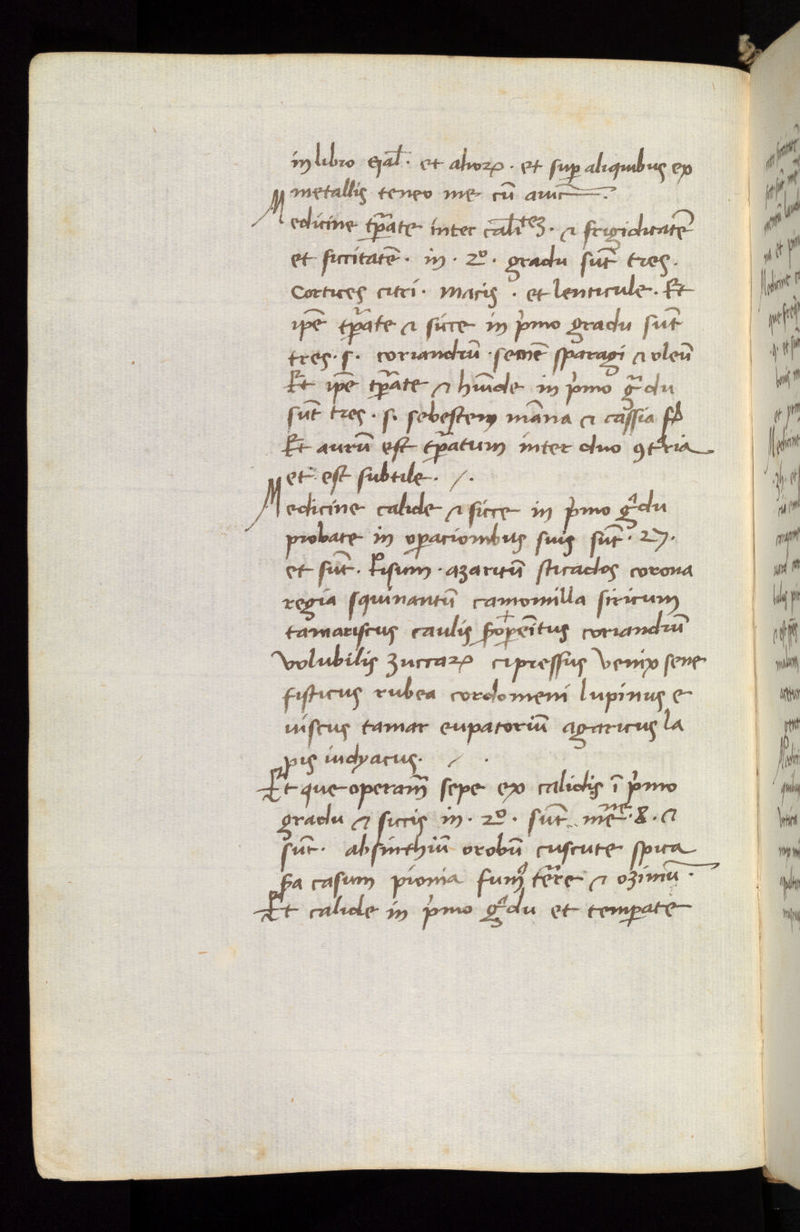 in libro Gal̄. et alioꝝ. et suꝑ aliquibus ex
metallis teneo me cū auic̄.
Medicine tꝑate inter calitez. ⁊ frigiditatē
et siccitatē. in. 2º. gradu sūt tres.
Cortices citri. macis. et lenticule. Et
ipē tꝑate ⁊ sicce in pͥmo gradu sūt
tres. s. coriandrū. semē sparagi ⁊ oleū
Et ipē tꝑate ⁊ hūide in pͥmo gᵃdu
sūt tres. s. sebesten māna ⁊ cassia
Et aurū est tꝑatum inter duo ꝯtria
et est subtile.
Medicine calide ⁊ sicce in pͥmo gᵃdu
probate in oꝑacionibus suis sūt. 27.
et sūt. Risum. azaritū sticados corona
regia squinantū camomilla siricum
tamariscus caulis coriandrū
volubilis zuccaꝝ cipressus venix sene
fisticus rubea cordomeni lupinus e
uiscus tamar eupatoriū agaricus la
pis indyacus.
Et que operant̄ sepe ex calidis ī pͥmo
gradu ⁊ siccis in. 2º. sūt. 8. ⁊
sūt. absinthiū orobū cuscute spica
casum pionia fumꝰ tēre ⁊ ozimū.
Et calide in pͥmo gᵃdu et temperate